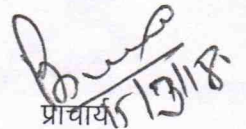 प्राचार्य 15/3/18